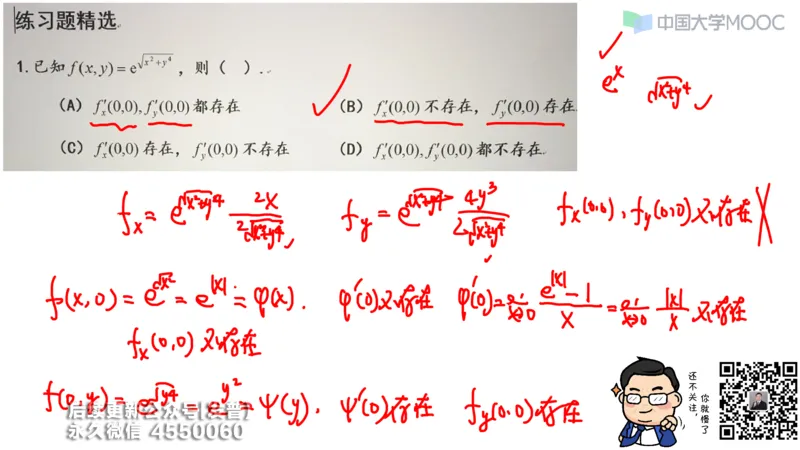 练习题精选
中国大学MOOC
1.已知 f(x,y)=e^{\sqrt{x^2+y^4}}，则（ ）.
(A) f'_x(0,0), f'_y(0,0) 都存在
(B) f'_x(0,0) 不存在，f'_y(0,0) 存在
(C) f'_x(0,0) 存在，f'_y(0,0) 不存在
(D) f'_x(0,0), f'_y(0,0) 都不存在
e^x \sqrt{x^2+y^4}
f_x = e^{\sqrt{x^2+y^4}} \frac{2x}{2\sqrt{x^2+y^4}} f_y = e^{\sqrt{x^2+y^4}} \frac{4y^3}{2\sqrt{x^2+y^4}} f_x(0,0), f_y(0,0) 不存在
f(x,0) = e^{\sqrt{x^2}} = e^{|x|} = φ(x). φ'(0)不存在 φ'(0)=\lim_{x→0} \frac{e^{|x|}-1}{x} = \lim_{x→0} \frac{|x|}{x} 不存在
f_x(0,0) 不存在
f(0,y) = e^{\sqrt{y^4}} = e^{y^2} = ψ(y). ψ'(0)存在 f_y(0,0)存在
永久微信 4550060
还不关注，
你就慢了